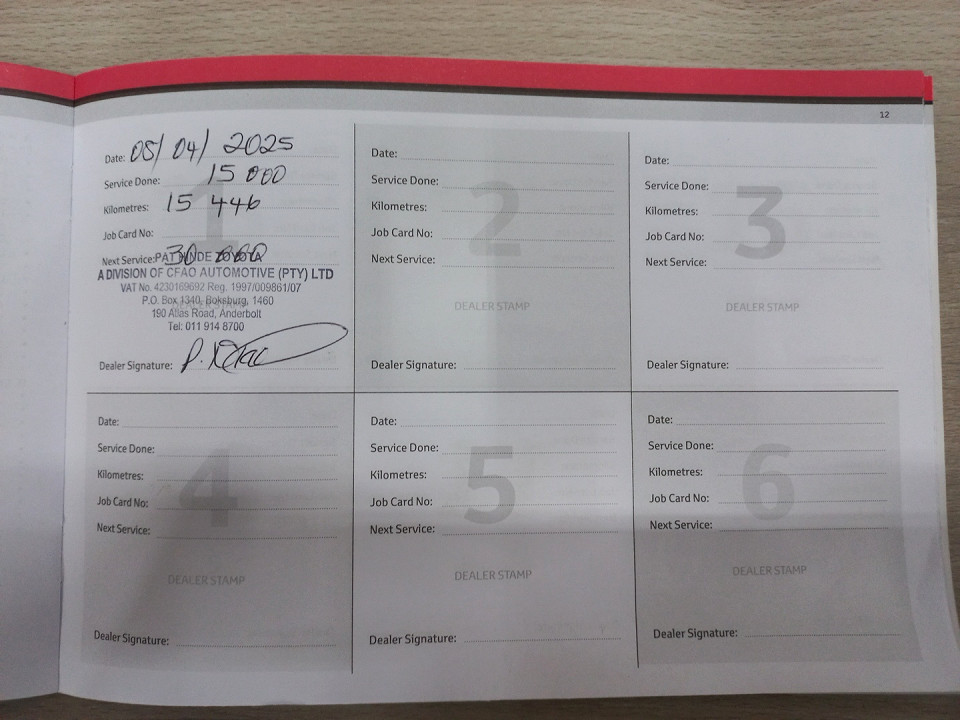 12
Date: 05/04/2025
Service Done: 15 000
Kilometres: 15 446
Job Card No:
Next Service: 30 000
A DIVISION OF CFAO AUTOMOTIVE (PTY) LTD
VAT No. 4230169692 Reg. 1997/009861/07
P.O. Box 1340, Boksburg, 1460
190 Atlas Road, Anderbolt
Tel: 011 914 8700
Dealer Signature:
1
Date:
Service Done:
Kilometres:
Job Card No:
Next Service:
2
DEALER STAMP
Dealer Signature:
Date:
Service Done:
Kilometres:
Job Card No:
Next Service:
3
DEALER STAMP
Dealer Signature:
Date:
Service Done:
Kilometres:
Job Card No:
Next Service:
4
DEALER STAMP
Dealer Signature:
Date:
Service Done:
Kilometres:
Job Card No:
Next Service:
5
DEALER STAMP
Dealer Signature:
Date:
Service Done:
Kilometres:
Job Card No:
Next Service:
6
DEALER STAMP
Dealer Signature: